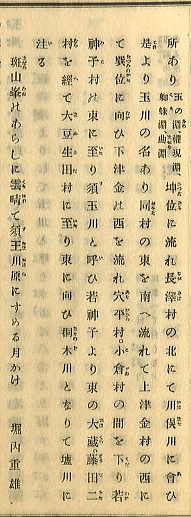 所あり 玉の淵權現淵
蜘蛛淵曲淵 坤位に流れ長澤村の北にて川俣川に會ひ
是より玉川の名あり同村の東を南へ流れて上津金村の西に
て巽位に向ひ下津金は西を流れ穴平村○小倉村の間を下り若
神子村は東に至り須玉川と呼ひ若神子より東の大藏○藤田二
村を經て大豆生田村に至り東に向ひ桐木川となりて塩川に
注る
斑山峯はあらしに雲晴て須玉川原にすめる月かけ 堀內重雄